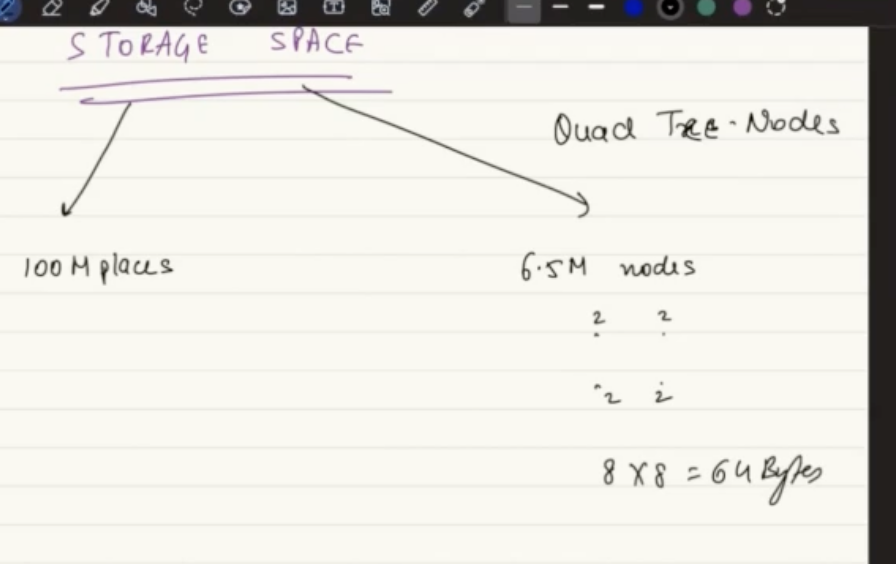 STORAGE SPACE
Quad Tree-Nodes
100 M places
6.5M nodes
2 2
2 2
8 X 8 = 64 Bytes